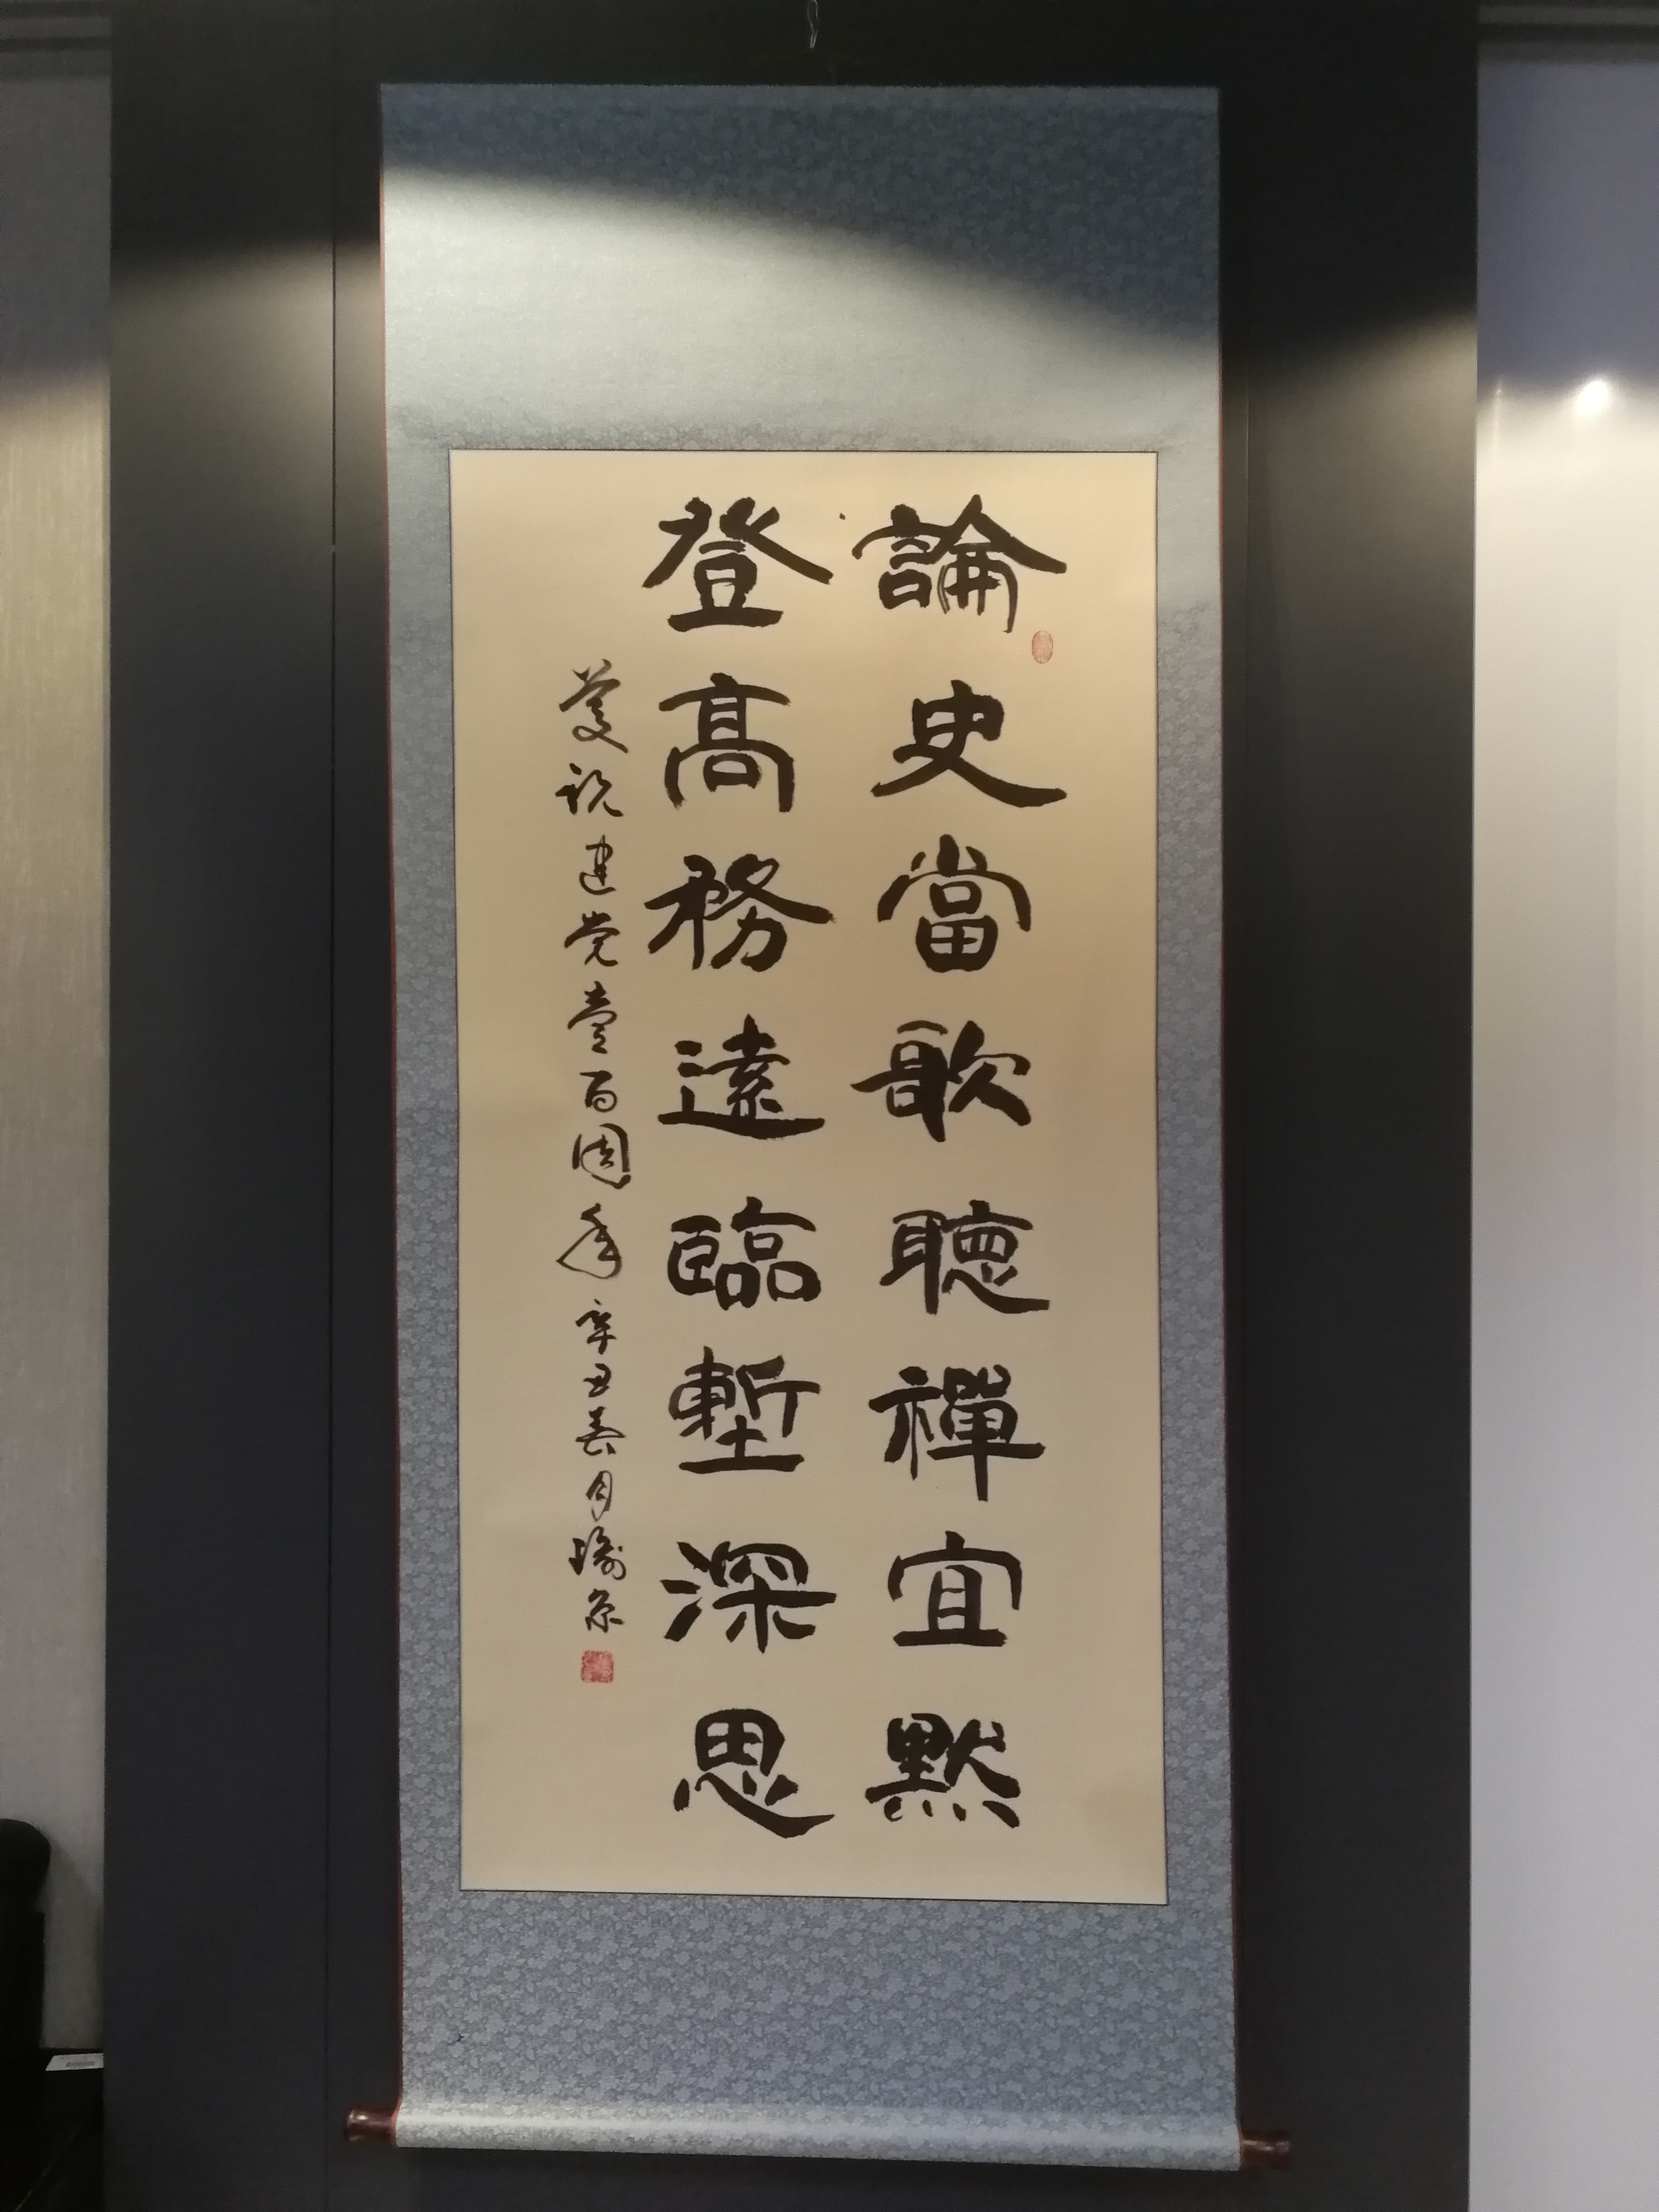 論史當歌聽禪宜默
登高務遠臨塹深思
慶祝建党壹百周年 辛丑春月瑜